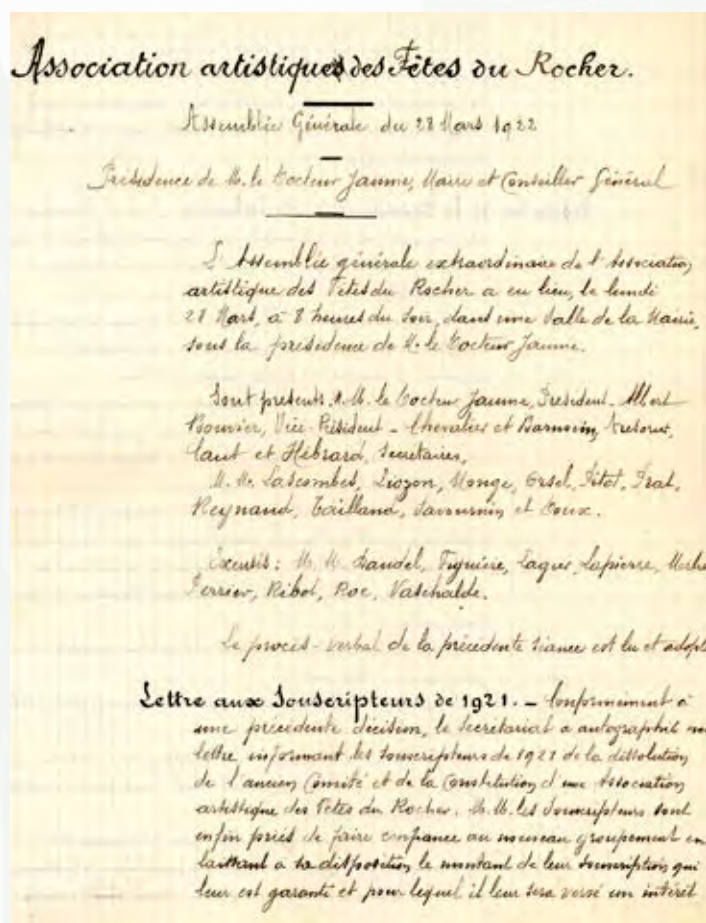 Association artistiques des Fêtes du Rocher.
Assemblée Générale du 28 Mars 1922
Présidence de M. le Docteur Jaume, Maire et Conseiller Général
L'Assemblée générale extraordinaire de l'Association
artistique des Fêtes du Rocher a eu lieu, le lundi
28 Mars, à 8 heures du soir, dans une salle de la Mairie,
sous la présidence de M. le Docteur Jaume.
Sont présents. M.M. le Docteur Jaume, Président - Albert
Bouvier, Vice-Président - Chevalier et Barnoin, Tresorier,
et Hébrard, Secrétaires,
M. M. Lascombes, Liozon, Monge, Orsel, Pitot, Prat,
Reynaud, Tailland, Savournin et
Excusés: M. M. Laquer, Lapierre,
Perrier, Ribot, Roc, Vaschalde.
Le procès-verbal de la précédente séance est lu et adopt
Lettre aux Souscripteurs de 1921. - Conformément à
une précédente décision, le Secrétariat a autographié
lettre informant les souscripteurs de 1921 de la dissolution
de l'ancien Comité et de la Constitution d'une Association
artistique des Fêtes du Rocher. M.M. les Souscripteurs sont
enfin priés de faire confiance au nouveau groupement en
laissant a sa disposition le montant de leur souscription qui
leur est garanti et pour lequel il leur sera versé un intérêt